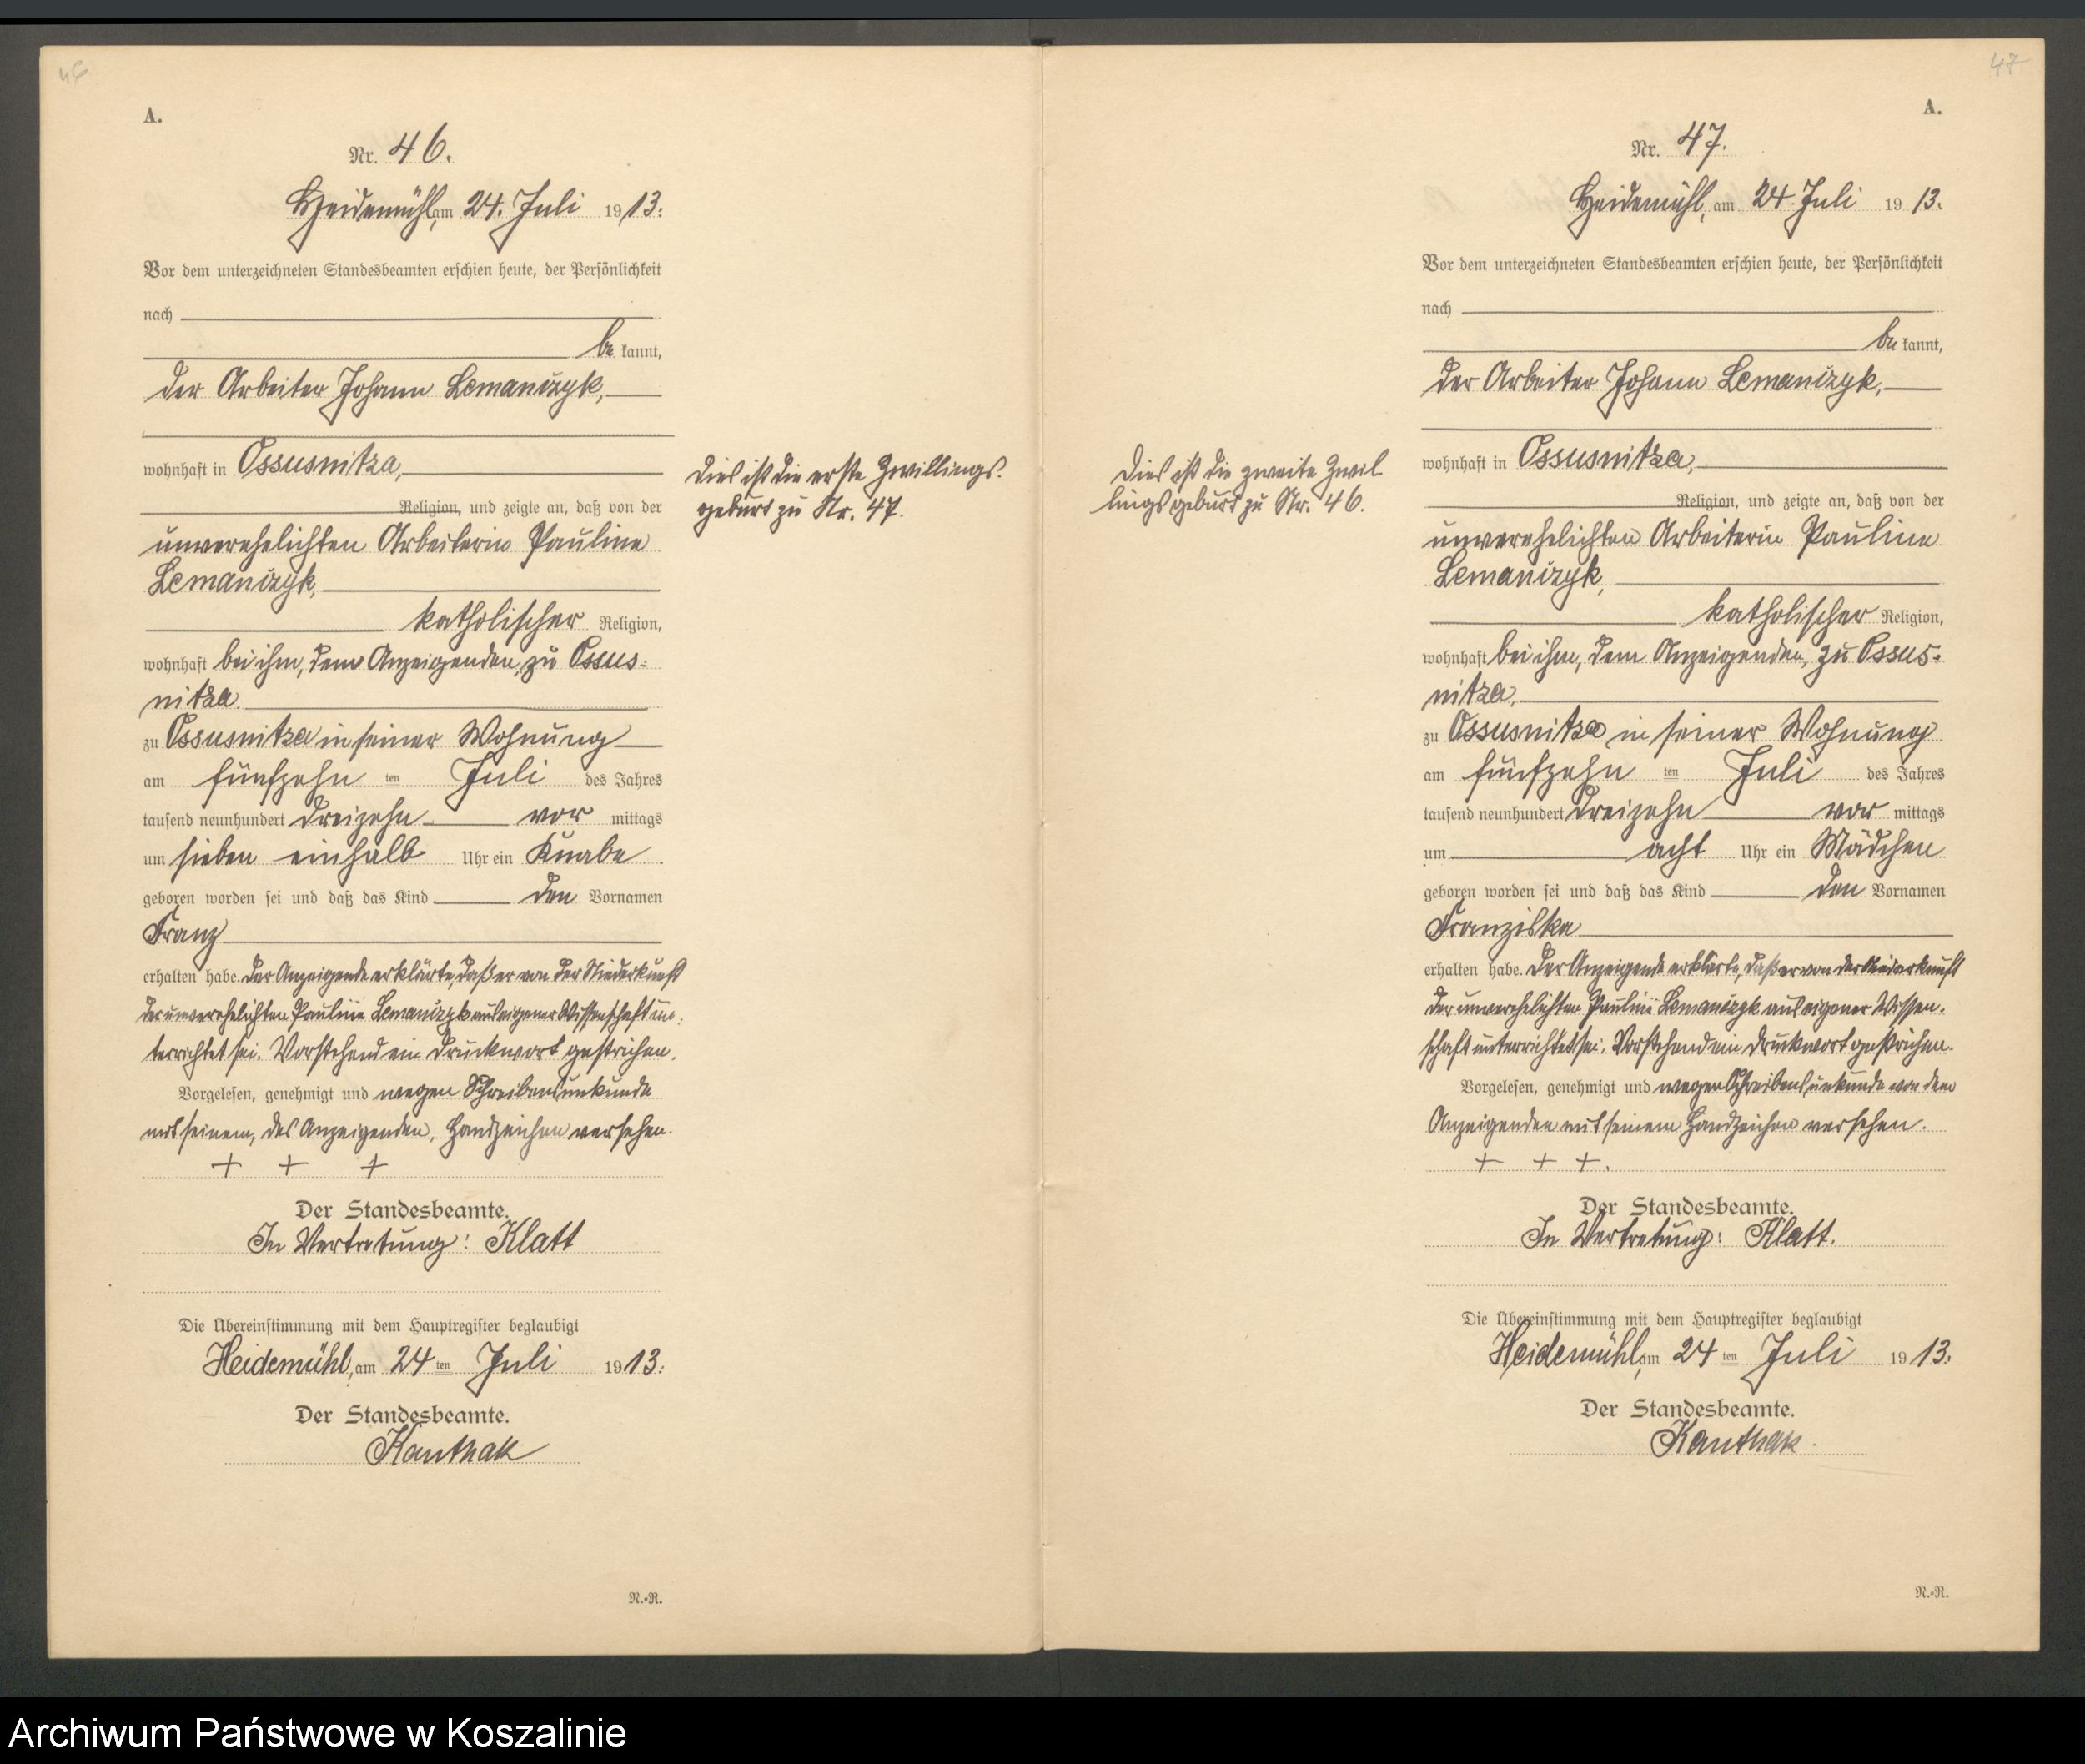 46
A.
Nr. 46.
Heidemühl, am 24. Juli 1913.
Vor dem unterzeichneten Standesbeamten erschien heute, der Persönlichkeit
nach
be kannt,
der Arbeiter Johann Lemanczyk,
wohnhaft in Ossusnitza,
Religion, und zeigte an, daß von der
unverehelichten Arbeiterin Pauline
Lemanczyk,
katholischer Religion,
wohnhaft bei ihm, dem Anzeigenden, zu Ossus-
nitza.
zu Ossusnitza in seiner Wohnung
am fünfzehn ten Juli des Jahres
tausend neunhundert dreizehn vor mittags
um sieben einhalb Uhr ein Knabe
geboren worden sei und daß das Kind den Vornamen
Franz
erhalten habe. Der Anzeigende erklärte, daß er von der Niederkunft
der unverehelichten Pauline Lemanczyk aus eigener Wissenschaft un-
terrichtet sei. Vorstehend ein Druckwort gestrichen.
Vorgelesen, genehmigt und wegen Schreibensunkunde
mit seinem, des Anzeigenden, Handzeichen versehen.
+ + +
Der Standesbeamte.
In Vertretung: Klatt
Die Übereinstimmung mit dem Hauptregister beglaubigt
Heidemühl, am 24 ten Juli 1913.
Der Standesbeamte.
Kanthak
N.-R.
Dies ist die erste Zwillings-
geburt zu Nr. 47.
47
A.
Nr. 47.
Heidemühl, am 24. Juli 1913.
Vor dem unterzeichneten Standesbeamten erschien heute, der Persönlichkeit
nach
be kannt,
der Arbeiter Johann Lemanczyk,
wohnhaft in Ossusnitza,
Religion, und zeigte an, daß von der
unverehelichten Arbeiterin Pauline
Lemanczyk,
katholischer Religion,
wohnhaft bei ihm, dem Anzeigenden, zu Ossus-
nitza,
zu Ossusnitza in seiner Wohnung
am fünfzehn ten Juli des Jahres
tausend neunhundert dreizehn vor mittags
um acht Uhr ein Mädchen
geboren worden sei und daß das Kind den Vornamen
Franziska
erhalten habe. Der Anzeigende erklärte, daß er von der Niederkunft
der unverehelichten Pauline Lemanczyk aus eigener Wissen-
schaft unterrichtet sei. Vorstehend ein Druckwort gestrichen.
Vorgelesen, genehmigt und wegen Schreibensunkunde von dem
Anzeigenden mit seinem Handzeichen versehen.
+ + +.
Der Standesbeamte.
In Vertretung: Klatt.
Die Übereinstimmung mit dem Hauptregister beglaubigt
Heidemühl, am 24 ten Juli 1913.
Der Standesbeamte.
Kanthak.
N.-R.
Dies ist die zweite Zwil-
lingsgeburt zu Nr. 46.
Archiwum Państwowe w Koszalinie